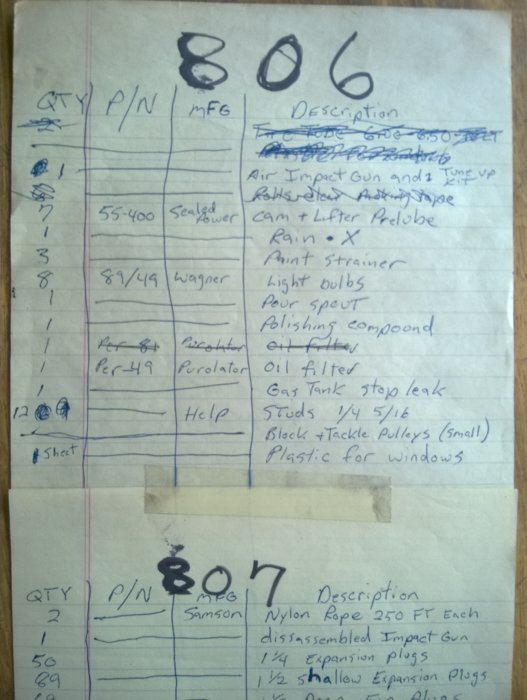 806
QTY P/N MFG Description
1 Air Impact Gun and 1 Tune up Kit
7 55-400 Sealed Power Cam + Lifter Prelube
1 Rain • X
3 Paint strainer
8 89/49 Wagner Light bulbs
1 Pour spout
1 Polishing compound
1 Per-81 Purolator Oil filter
1 Per-49 Purolator Oil filter
1 Gas Tank stop leak
12 Help Studs 1/4 5/16
Block + Tackle Pulleys (small)
1 sheet Plastic for windows
807
QTY P/N MFG Description
2 Samson Nylon Rope 250 FT Each
1 dissassembled Impact Gun
50 1 1/4 Expansion plugs
89 1 1/2 shallow Expansion Plugs